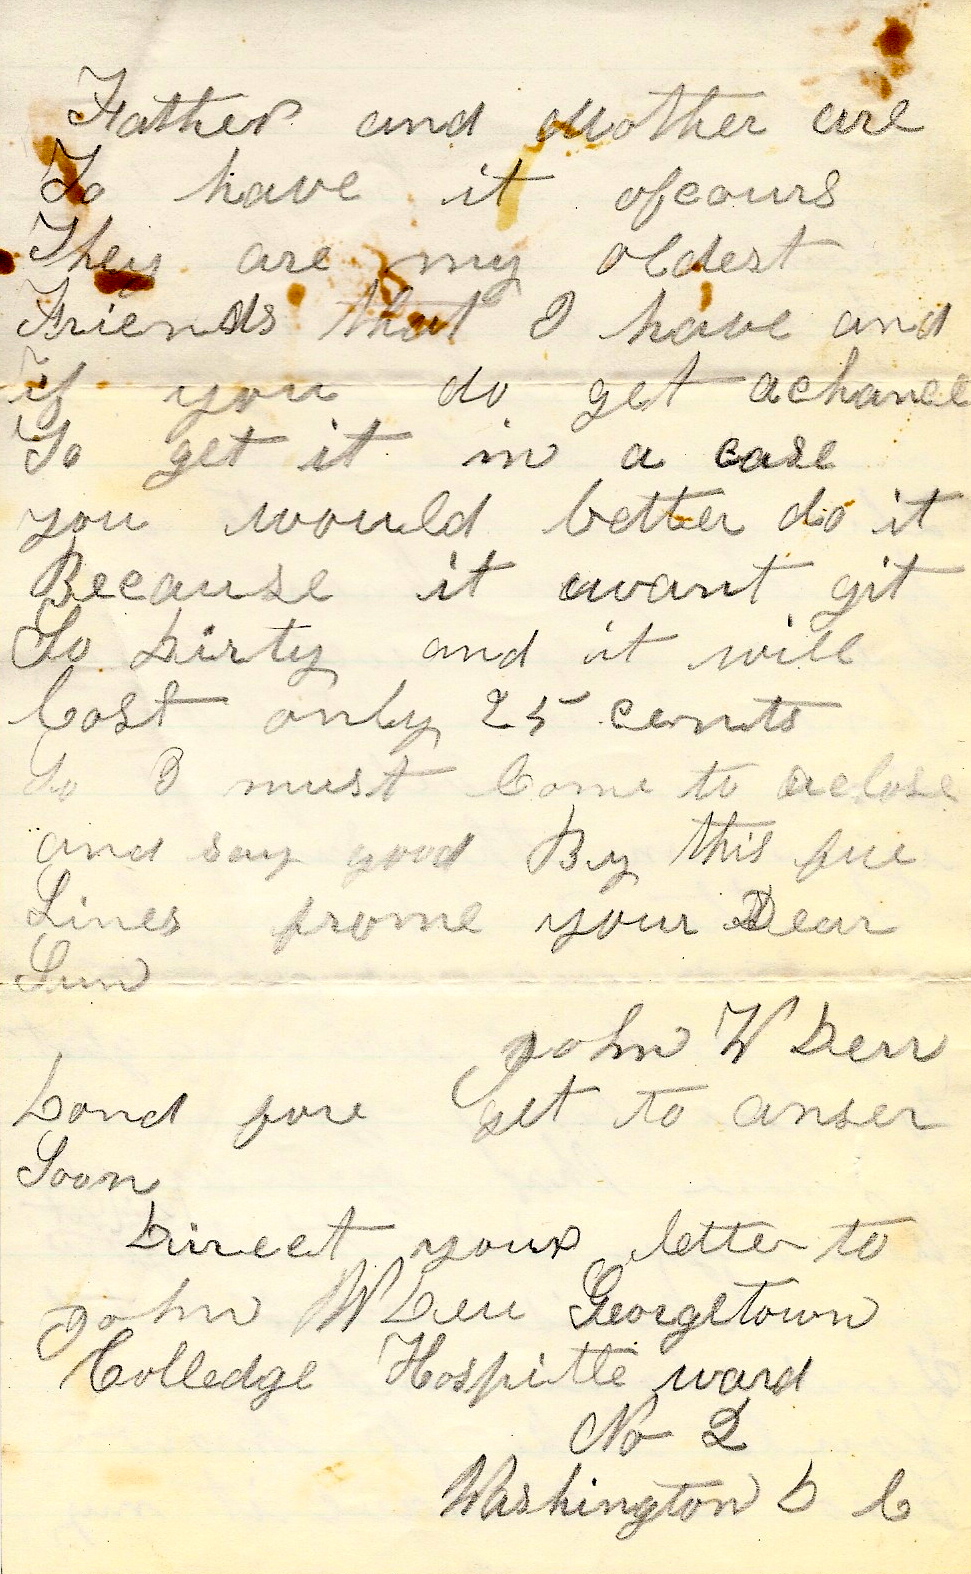 Father and Mother are
To have it ofcours
They are my oldest
Friends that I have and
if you do get achance
To get it in a case
you would better do it
Because it want git
So Dirty and it will
Cost only 25 cents
So I must Come to aclose
and say good By this fue
Lines frome your Dear
Sun
John W Derr
Dond fore get to anser
Soon
Direct your letter to
John W Derr Georgetown
Colledge Hospittle ward
No 2
Washington D C